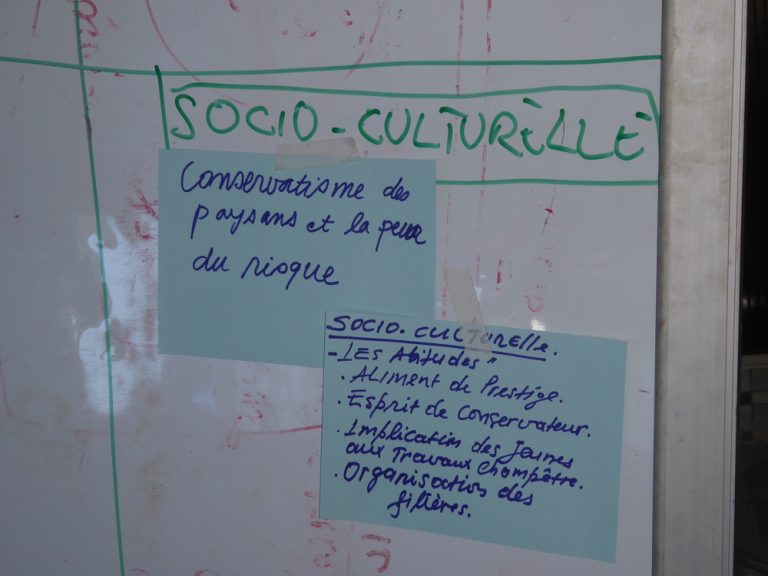 SOCIO-CULTURELLE
Conservatisme des
paysans et la peur
du risque
SOCIO-CULTURElle.
- LES Abitudes"
. ALIMENT de Prestige.
. Esprit de Conservateur.
. Implication des Jeunes
aux Travaux Champêtre.
. Organisation des
filières.